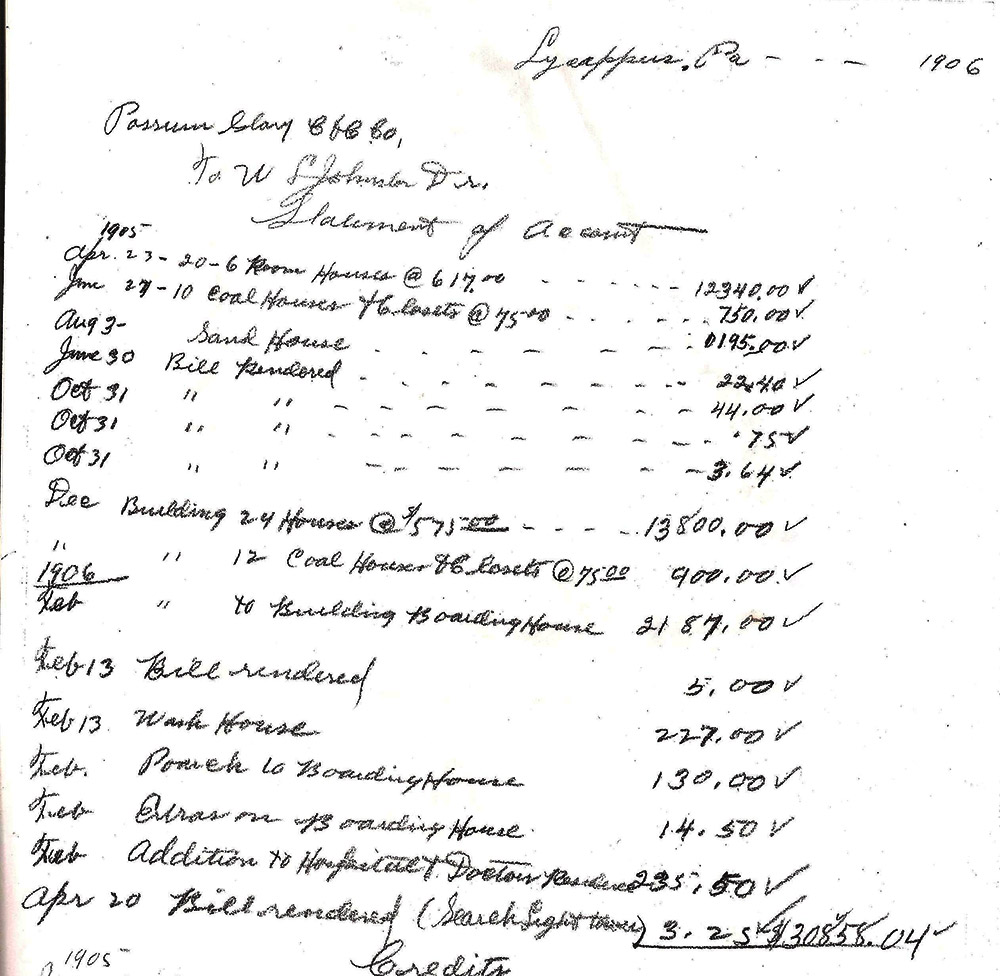 Lycippus, Pa - - - 1906
Possum Glory C & C Co,
To W S Johnston Dr.
Statement of Account
1905
Apr. 23 - 20 - 6 Room Houses @ 617.00 - - - - - - 12340.00 ✓
June 27 - 10 Coal Houses & Closets @ 75.00 - - - - 750.00 ✓
Aug 3 - Sand House - - - - - - 0195.00 ✓
June 30 Bill Rendered - - - - - - 22.40 ✓
Oct 31 " " - - - - - - - 44.00 ✓
Oct 31 " " - - - - - - - .75 ✓
Oct 31 " " - - - - - - - 3.64 ✓
Dec Building 24 Houses @ $575.00 - - - - 13800.00 ✓
" " 12 Coal Houses & Closets @ 75.00 900.00 ✓
1906
Feb " to Building Boarding House 2187.00 ✓
Feb 13 Bill rendered 5.00 ✓
Feb 13 Wash House 227.00 ✓
Feb. Poarch to Boarding House 130.00 ✓
Feb Extras on Boarding House 14.50 ✓
Feb Addition to Hospital & Doctors Residence 235.50 ✓
Apr 20 Bill rendered (Search Light tower) 3.25 ✓ $30858.04 ✓
1905
Credits